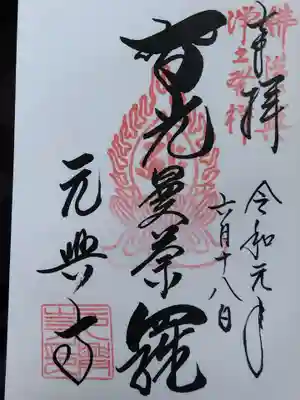 奉拝
佛法元興
浄土発祥
令和元年
六月十八日
智光曼荼羅
元興寺